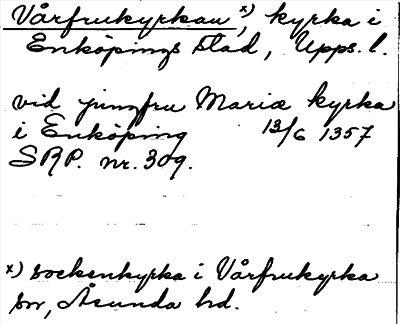 Vårfrukyrkan,x) kyrka i
Enköpings stad, Upps. l.
vid jungfru Mariæ kyrka
i Enköping 13/6 1357
SRP. nr. 309.
x) sockenkyrka i Vårfrukyrka
sn, Åsunda hd.